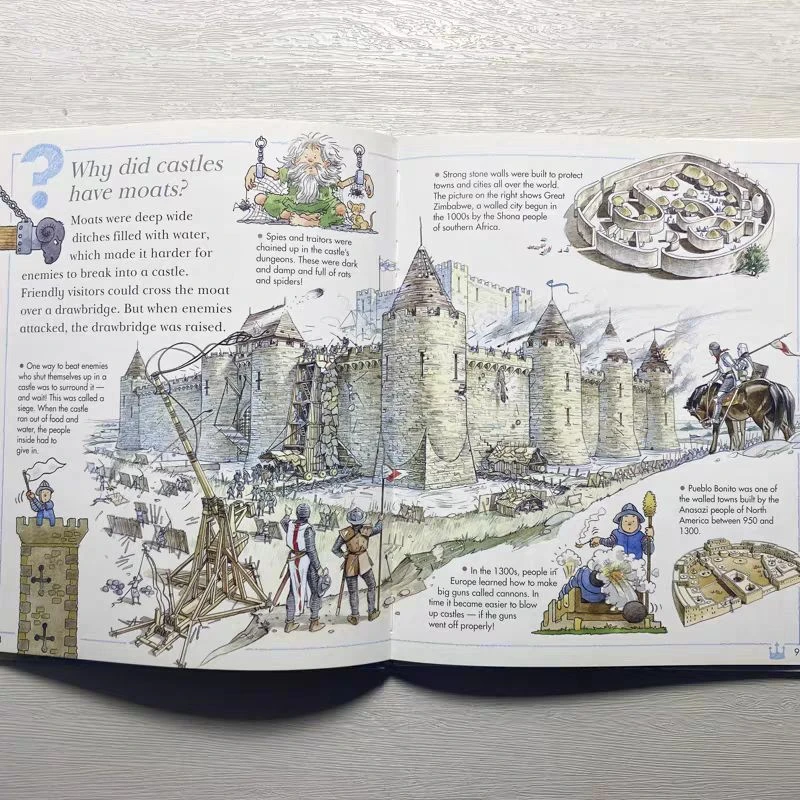 ?
Why did castles
have moats?
Moats were deep wide
ditches filled with water,
which made it harder for
enemies to break into a castle.
Friendly visitors could cross the moat
over a drawbridge. But when enemies
attacked, the drawbridge was raised.
• One way to beat enemies
who shut themselves up in a
castle was to surround it —
and wait! This was called a
siege. When the castle
ran out of food and
water, the people
inside had to
give in.
• Spies and traitors were
chained up in the castle's
dungeons. These were dark
and damp and full of rats
and spiders!
• Strong stone walls were built to protect
towns and cities all over the world.
The picture on the right shows Great
Zimbabwe, a walled city begun in
the 1000s by the Shona people
of southern Africa.
• In the 1300s, people in
Europe learned how to make
big guns called cannons. In
time it became easier to blow
up castles — if the guns
went off properly!
• Pueblo Bonito was one of
the walled towns built by the
Anasazi people of North
America between 950 and
1300.
9